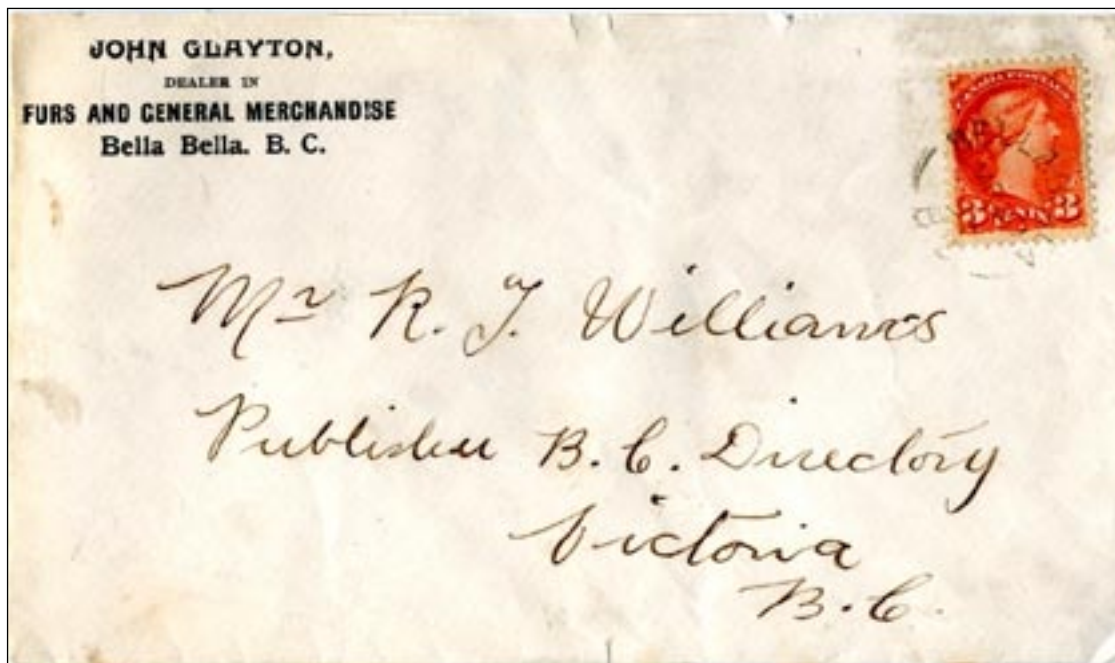 JOHN CLAYTON,
DEALER IN
FURS AND GENERAL MERCHANDISE
Bella Bella. B. C.
CANADA POSTAGE
3 CENTS 3
Mr R. T. Williams
Publisher B. C. Directory
Victoria
B. C.